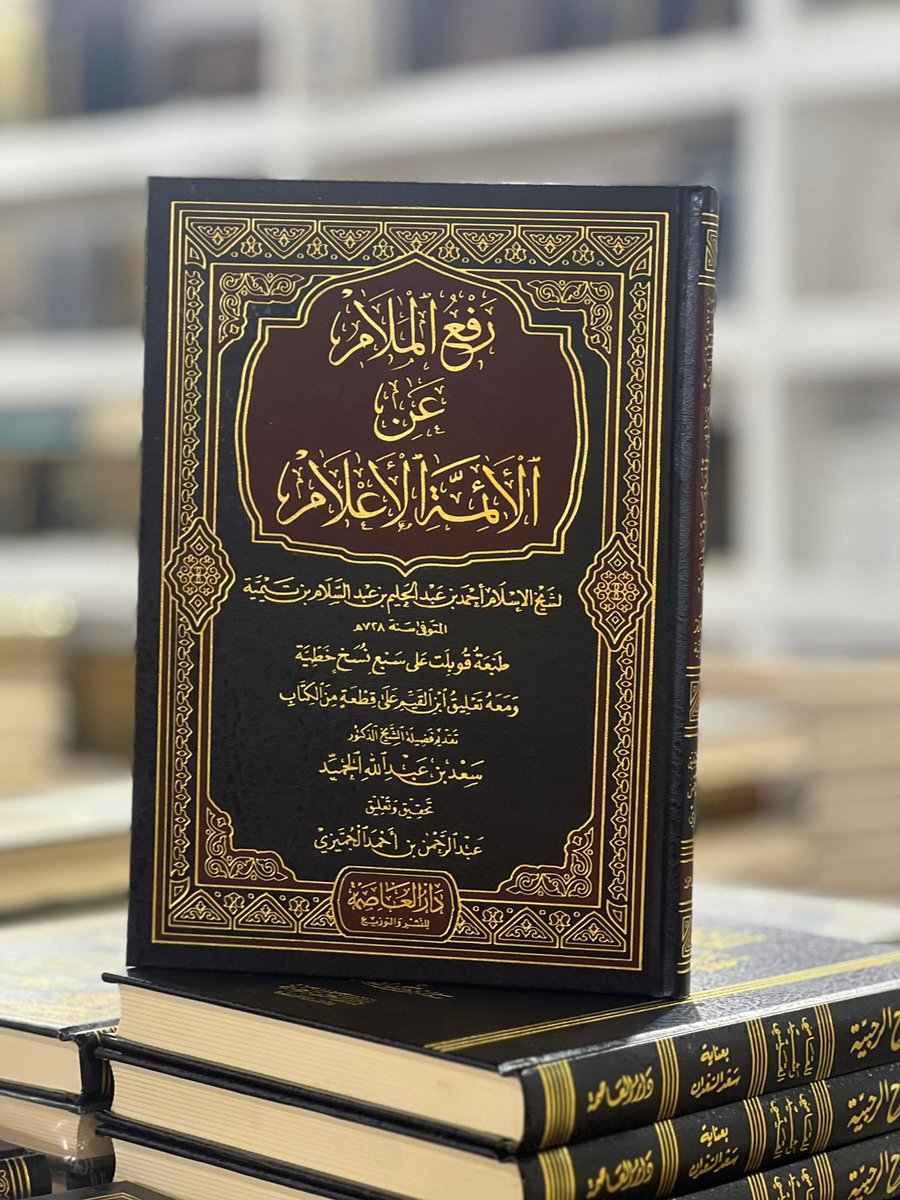 رَفْعُ الْمَلَامِ
عَنِ
الْأَئِمَّةِ الْأَعْلَامِ
لشيخ الإسلام أحمد بن عبد الحليم بن عبد السلام بن تيمية
المتوفى سنة ٧٢٨هـ
طبعة قوبلت على سبع نسخ خطية
ومعه تعليق ابن القيم على قطعة من الكتاب
تقديم فضيلة الشيخ الدكتور
سعد بن عبد الله الحميد
تحقيق وتعليق
عبد الرحمن بن أحمد الحميزي
دار العاصمة
للنشر والتوزيع
بعناية
سعد السعدان
دار العاصمة
بعناية
سعد السعدان
دار العاصمة